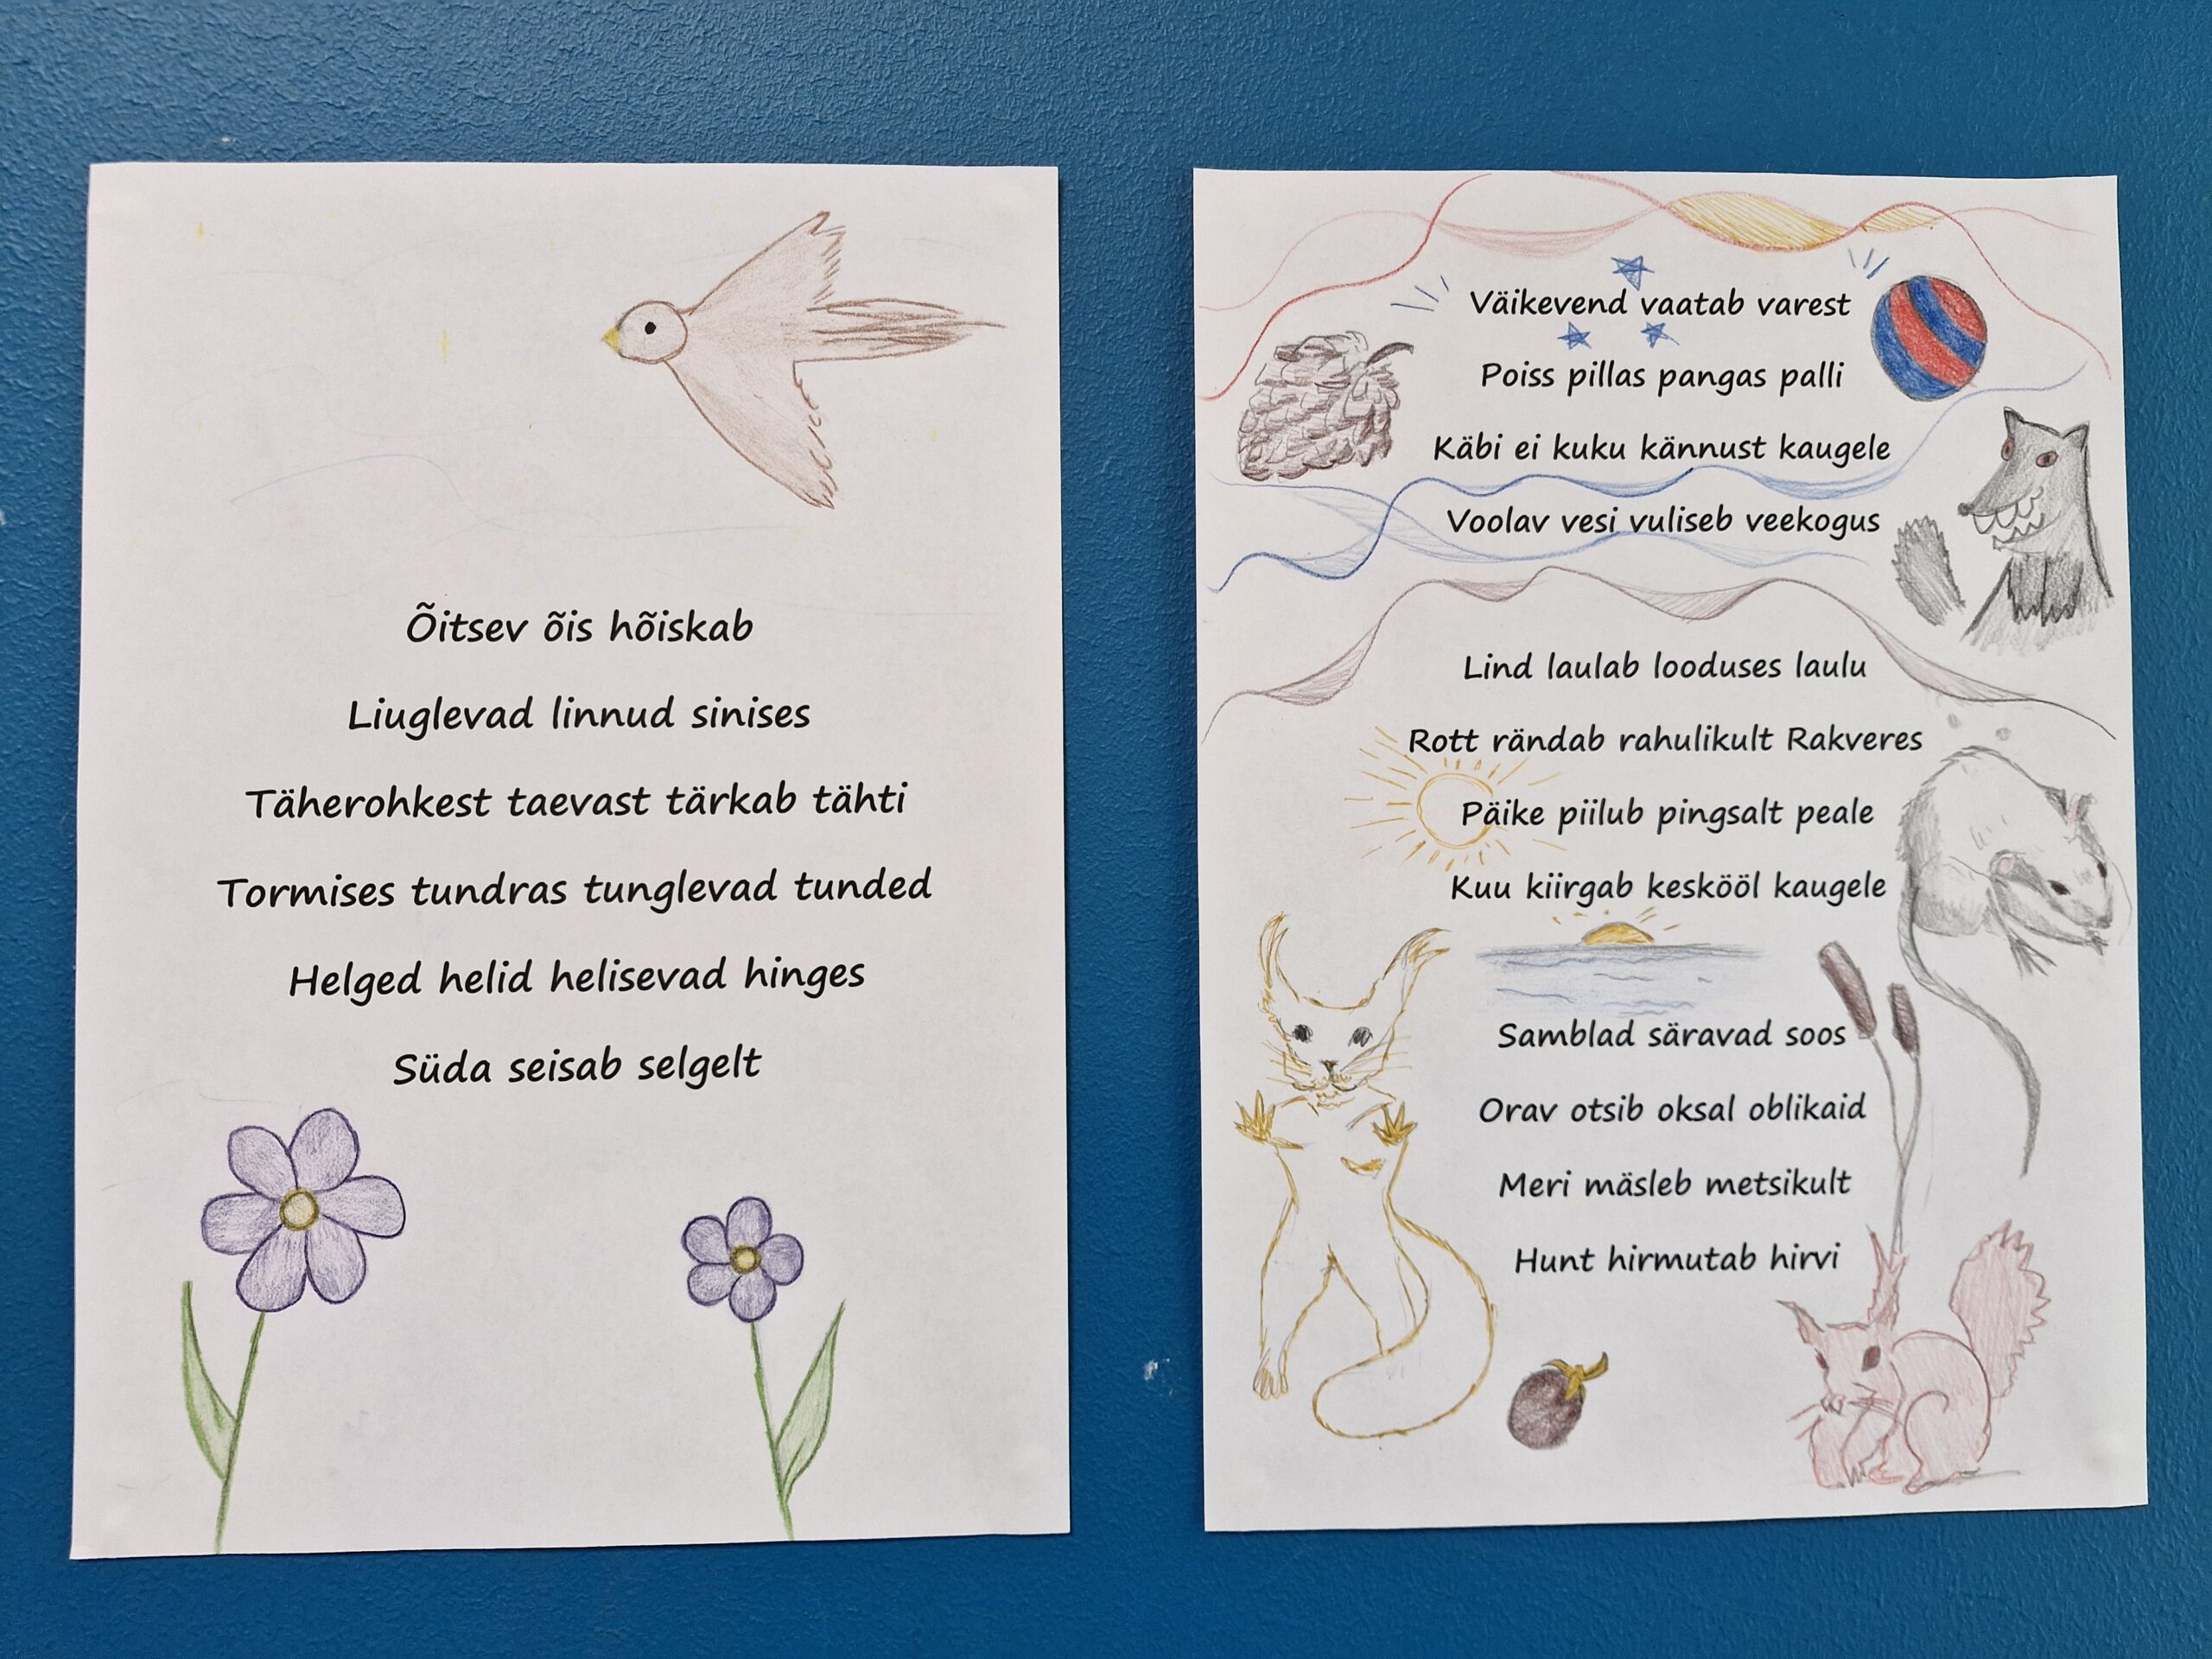 Õitsev õis hõiskab
Liuglevad linnud sinises
Täherohkest taevast tärkab tähti
Tormises tundras tunglevad tunded
Helged helid helisevad hinges
Süda seisab selgelt
Väikevend vaatab varest
Poiss pillas pangas palli
Käbi ei kuku kännust kaugele
Voolav vesi vuliseb veekogus
Lind laulab looduses laulu
Rott rändab rahulikult Rakveres
Päike piilub pingsalt peale
Kuu kiirgab keskööl kaugele
Samblad säravad soos
Orav otsib oksal oblikaid
Meri mäsleb metsikult
Hunt hirmutab hirvi